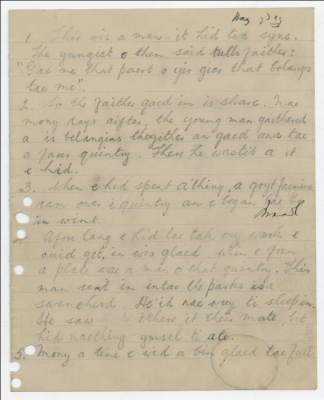 1. This wis a man it hid twa syns.
The yungist o them said tull's faither:
"Gae me that pairt o yir gear that belangs
tae me".
2. So the faither gaed im is share. Nae
mony days aifter, the young man gaithered
a is belangins thegither an gaed awa tae
a far quintry. There he wastit a it
e hid.
3. When e hid spent a'thing, a gryt famine
cam ower e quintry an e began tae be
in want.
Afore lang e hid tae tak ony wark e
cuid get, an wis glaed when e fan
a place wae a man o that quintry. This
man sent im intae the parks is a
swineherd. He'd nae wey to sleep in.
He saw it there mate, bit
hid naething imsel to ate.
5. Mony a time e wid a bin glaed tae full